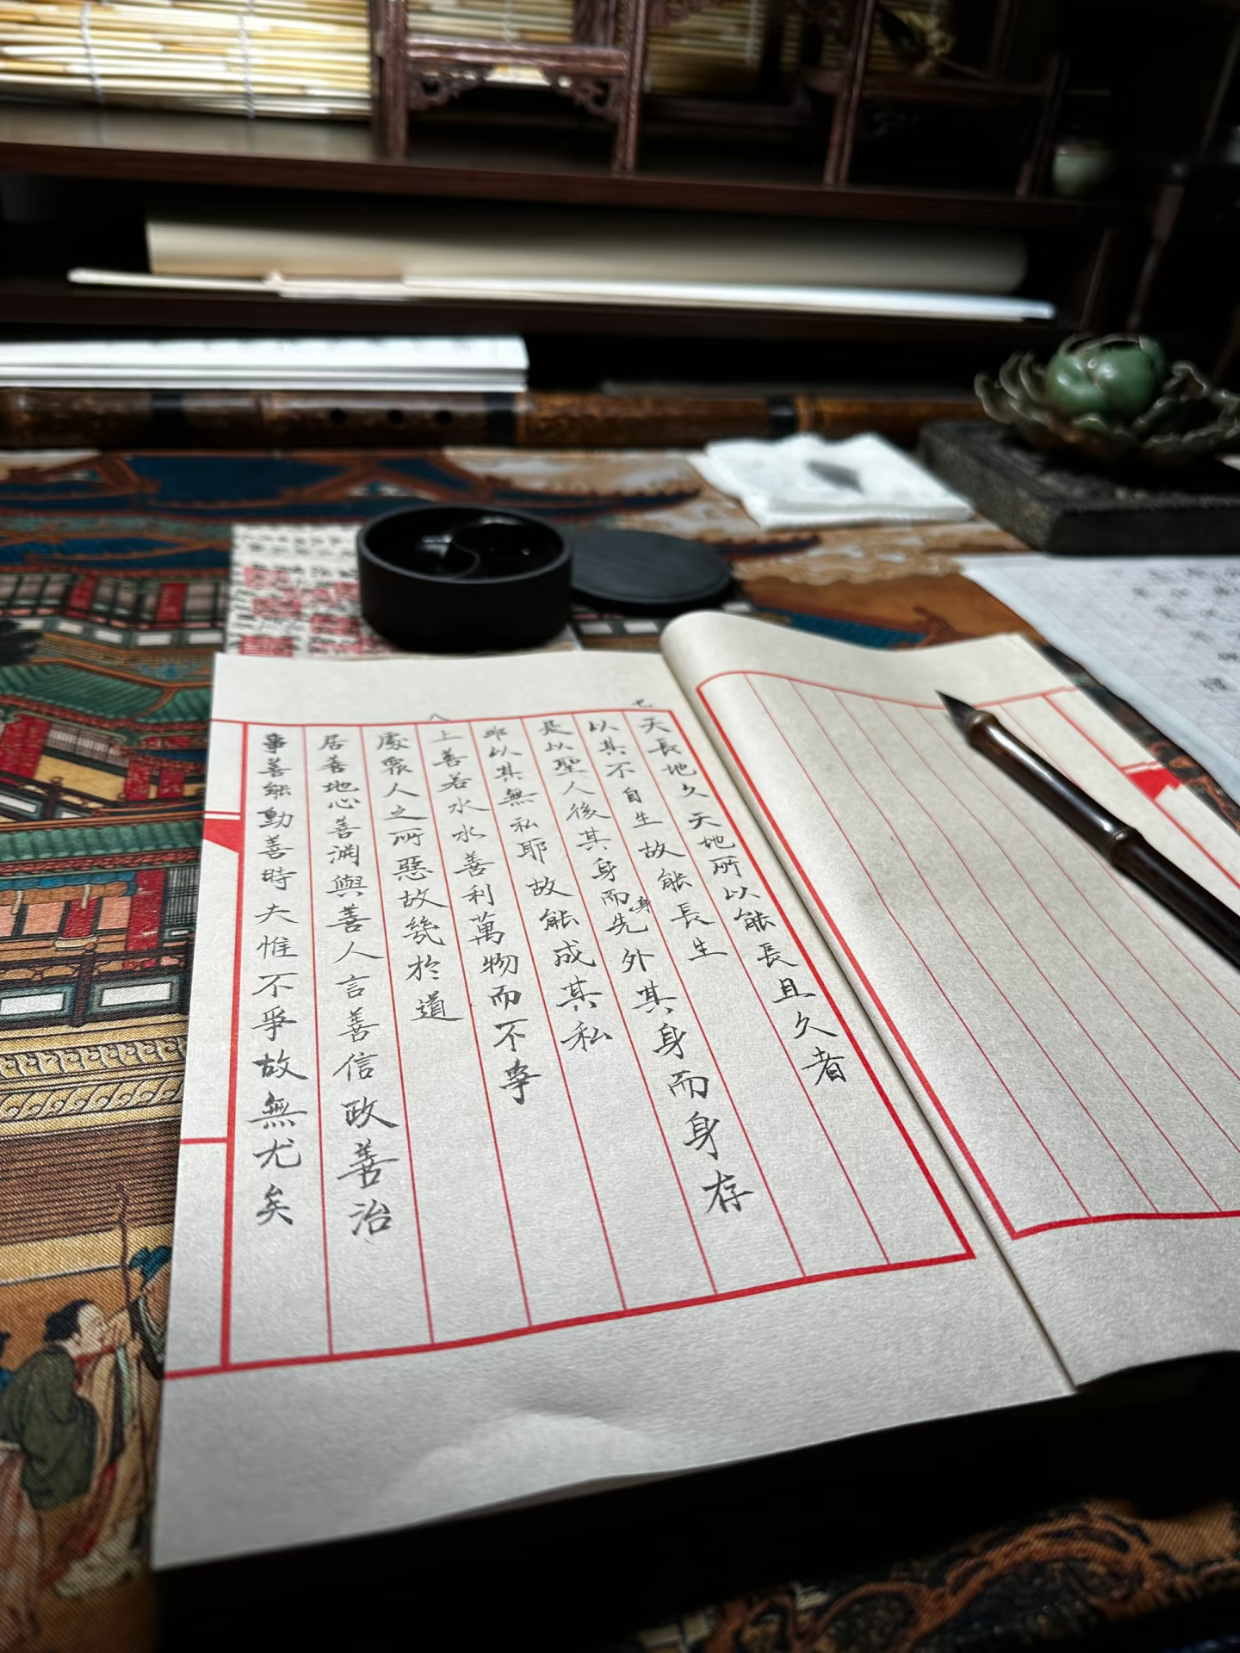 七
天長地久天地所以能長且久者
以其不自生故能長生
是以聖人後其身而身先外其身而身存
非以其無私耶故能成其私
八
上善若水水善利萬物而不爭
處衆人之所惡故幾於道
居善地心善淵與善人言善信政善治
事善能動善時夫惟不爭故無尤矣